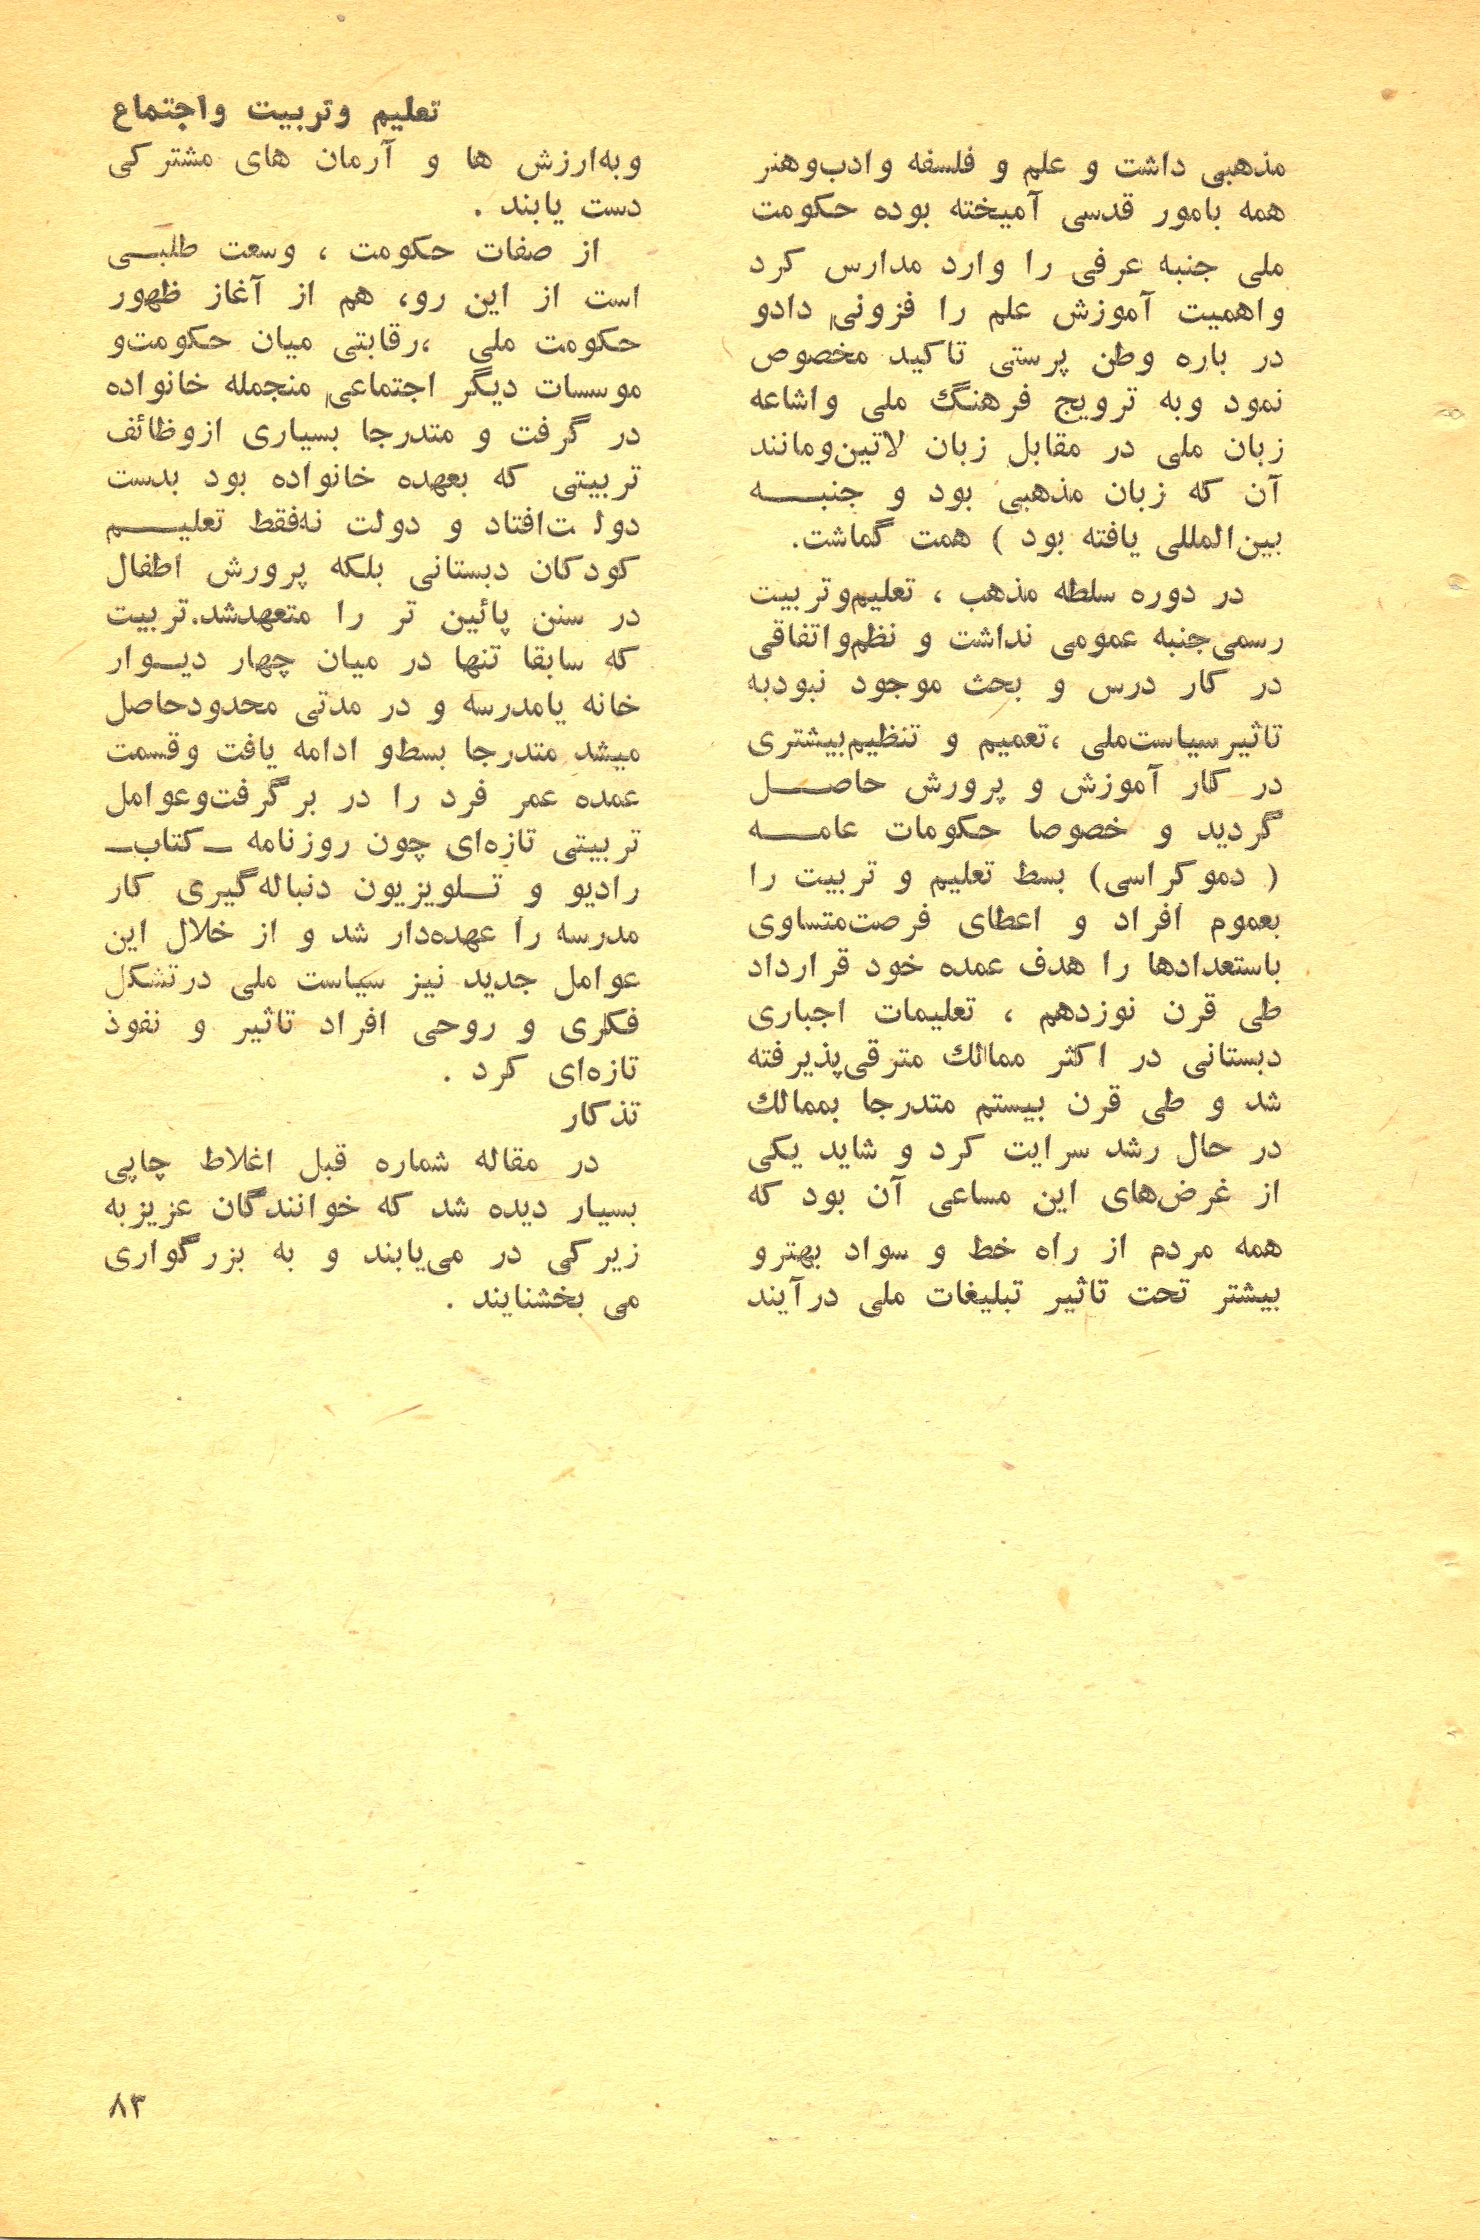 تعلیم وتربیت واجتماع
مذهبی داشت و علم و فلسفه وادب‌وهنر
همه بامور قدسی آمیخته بوده حکومت
ملی جنبه عرفی را وارد مدارس کرد
واهمیت آموزش علم را فزونی دادو
در باره وطن پرستی تاکید مخصوص
نمود وبه ترویج فرهنگ ملی واشاعه
زبان ملی در مقابل زبان لاتین‌ومانند
آن که زبان مذهبی بود و جنبـــه
بین‌المللی یافته بود ) همت گماشت.
در دوره سلطه مذهب ، تعلیم‌وتربیت
رسمی‌جنبه عمومی نداشت و نظم‌واتفاقی
در کار درس و بحث موجود نبودبه
تاثیر سیاست‌ملی ،تعمیم و تنظیم‌بیشتری
در کار آموزش و پرورش حاصــل
گردید و خصوصا حکومات عامـــه
( دموکراسی) بسط تعلیم و تربیت را
بعموم افراد و اعطای فرصت‌متساوی
باستعدادها را هدف عمده خود قرارداد
طی قرن نوزدهم ، تعلیمات اجباری
دبستانی در اکثر ممالك مترقی‌پذیرفته
شد و طی قرن بیستم متدرجا بممالك
در حال رشد سرایت کرد و شاید یکی
از غرض‌های این مساعی آن بود که
همه مردم از راه خط و سواد بهترو
بیشتر تحت تاثیر تبلیغات ملی درآیند
وبه‌ارزش ها و آرمان های مشترکی
دست یابند .
از صفات حکومت ، وسعت طلبــی
است از این رو، هم از آغاز ظهور
حکومت ملی ،رقابتی میان حکومت‌و
موسسات دیگر اجتماعی منجمله خانواده
در گرفت و متدرجا بسیاری ازوظائف
تربیتی که بعهده خانواده بود بدست
دول ت‌افتاد و دولت نه‌فقط تعلیـــم
کودکان دبستانی بلکه پرورش اطفال
در سنن پائین تر را متعهدشد.تربیت
که سابقا تنها در میان چهار دیــوار
خانه یامدرسه و در مدتی محدودحاصل
میشد متدرجا بسط‌و ادامه یافت وقسمت
عمده عمر فرد را در برگرفت‌وعوامل
تربیتی تازه‌ای چون روزنامه ــ کتاب‌ــ
رادیو و تــلویزیون دنباله‌گیری کار
مدرسه را عهده‌دار شد و از خلال این
عوامل جدید نیز سیاست ملی درتشکل
فکری و روحی افراد تاثیر و نفوذ
تازه‌ای کرد .
تذکار
در مقاله شماره قبل اغلاط چاپی
بسیار دیده شد که خوانندگان عزیزبه
زیرکی در می‌یابند و به بزرگواری
می بخشنایند .
۸۳